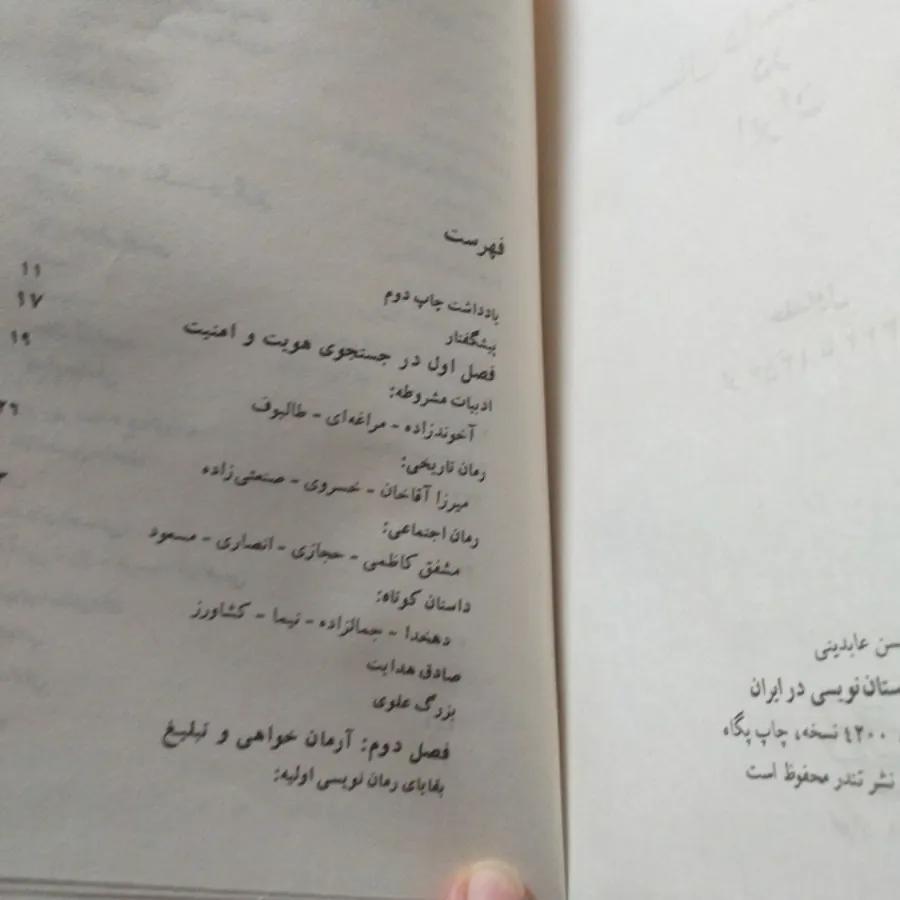 سن عابدینی
ستان‌نویسی در ایران
۴۲۰۰ نسخه، چاپ پگاه
نشر تندر محفوظ است
فهرست
یادداشت چاپ دوم ۱۱
پیشگفتار ۱۷
فصل اول در جستجوی هویت و امنیت ۱۹
ادبیات مشروطه:
آخوندزاده - مراغه‌ای - طالبوف ۲۶
رمان تاریخی:
میرزا آقاخان - خسروی - صنعتی‌زاده
رمان اجتماعی:
مشفق کاظمی - حجازی - انصاری - مسعود
داستان کوتاه:
دهخدا - جمالزاده - نیما - کشاورز
صادق هدایت
بزرگ علوی
فصل دوم: آرمان خواهی و تبلیغ
بقایای رمان نویسی اولیه: